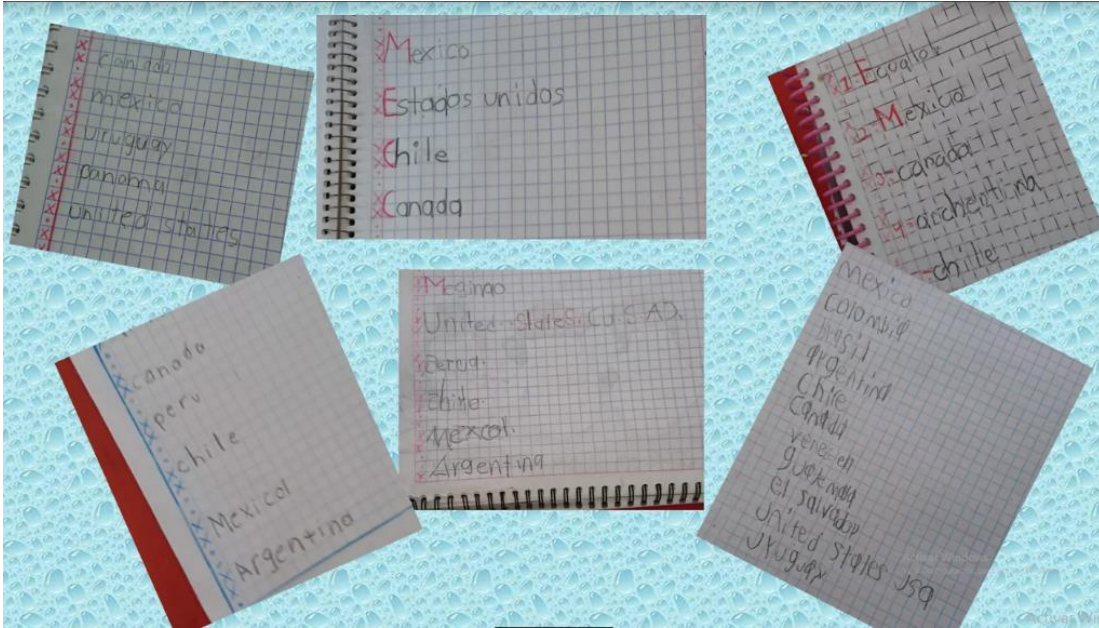 canada
mexico
uruguay
panama
united states
Mexico
Estados unidos
Chile
Canada
1-Ecuallor
2-Mexicol
canada
4-archentina
chile
canada
peru
chile
Mexicol
Argentina
United States. CU.S.A).
chile.
Mexcol.
Argentina
Mexico
colombia
brasil
argentina
Chile
Canada
guatemala
el salvador
united states usa
uruguay